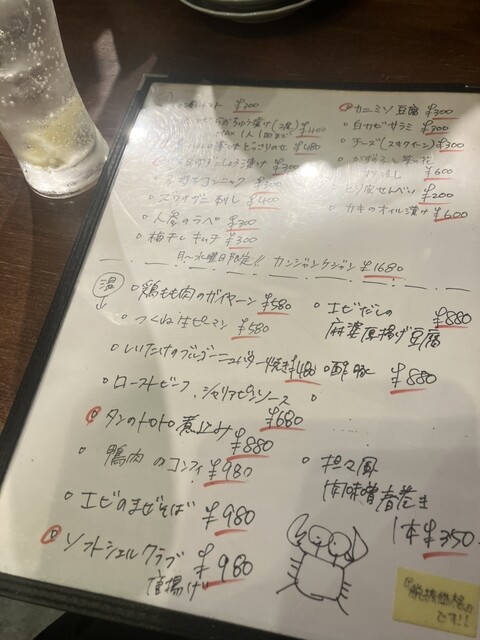 ¥300
(2尾)
max 1人1回まで ¥400
¥480
¥300
¥300
¥400
人参のラペ ¥300
梅干しキムチ ¥300
カニミソ豆腐 ¥300
白カビサラミ ¥300
チーズ(スモーク) ¥300
¥600
せんべい ¥200
カキのオイル漬け ¥600
月〜水曜日限定!! カンジャンケジャン ¥1680
温
鶏もも肉のガイヤーン ¥580
つくね 生ピーマン ¥580
しいたけのブルゴーニュバター焼き ¥480
ローストビーフ、シャリアピンソース
¥680
タンのトロトロ煮込み
¥880
鴨肉のコンフィ ¥980
エビのまぜそば ¥980
ソフトシェルクラブ
唐揚げ ¥980
エビだしの
麻婆厚揚げ豆腐 ¥880
酢豚 ¥880
担々風
肉味噌春巻き
1本 ¥350
です!!